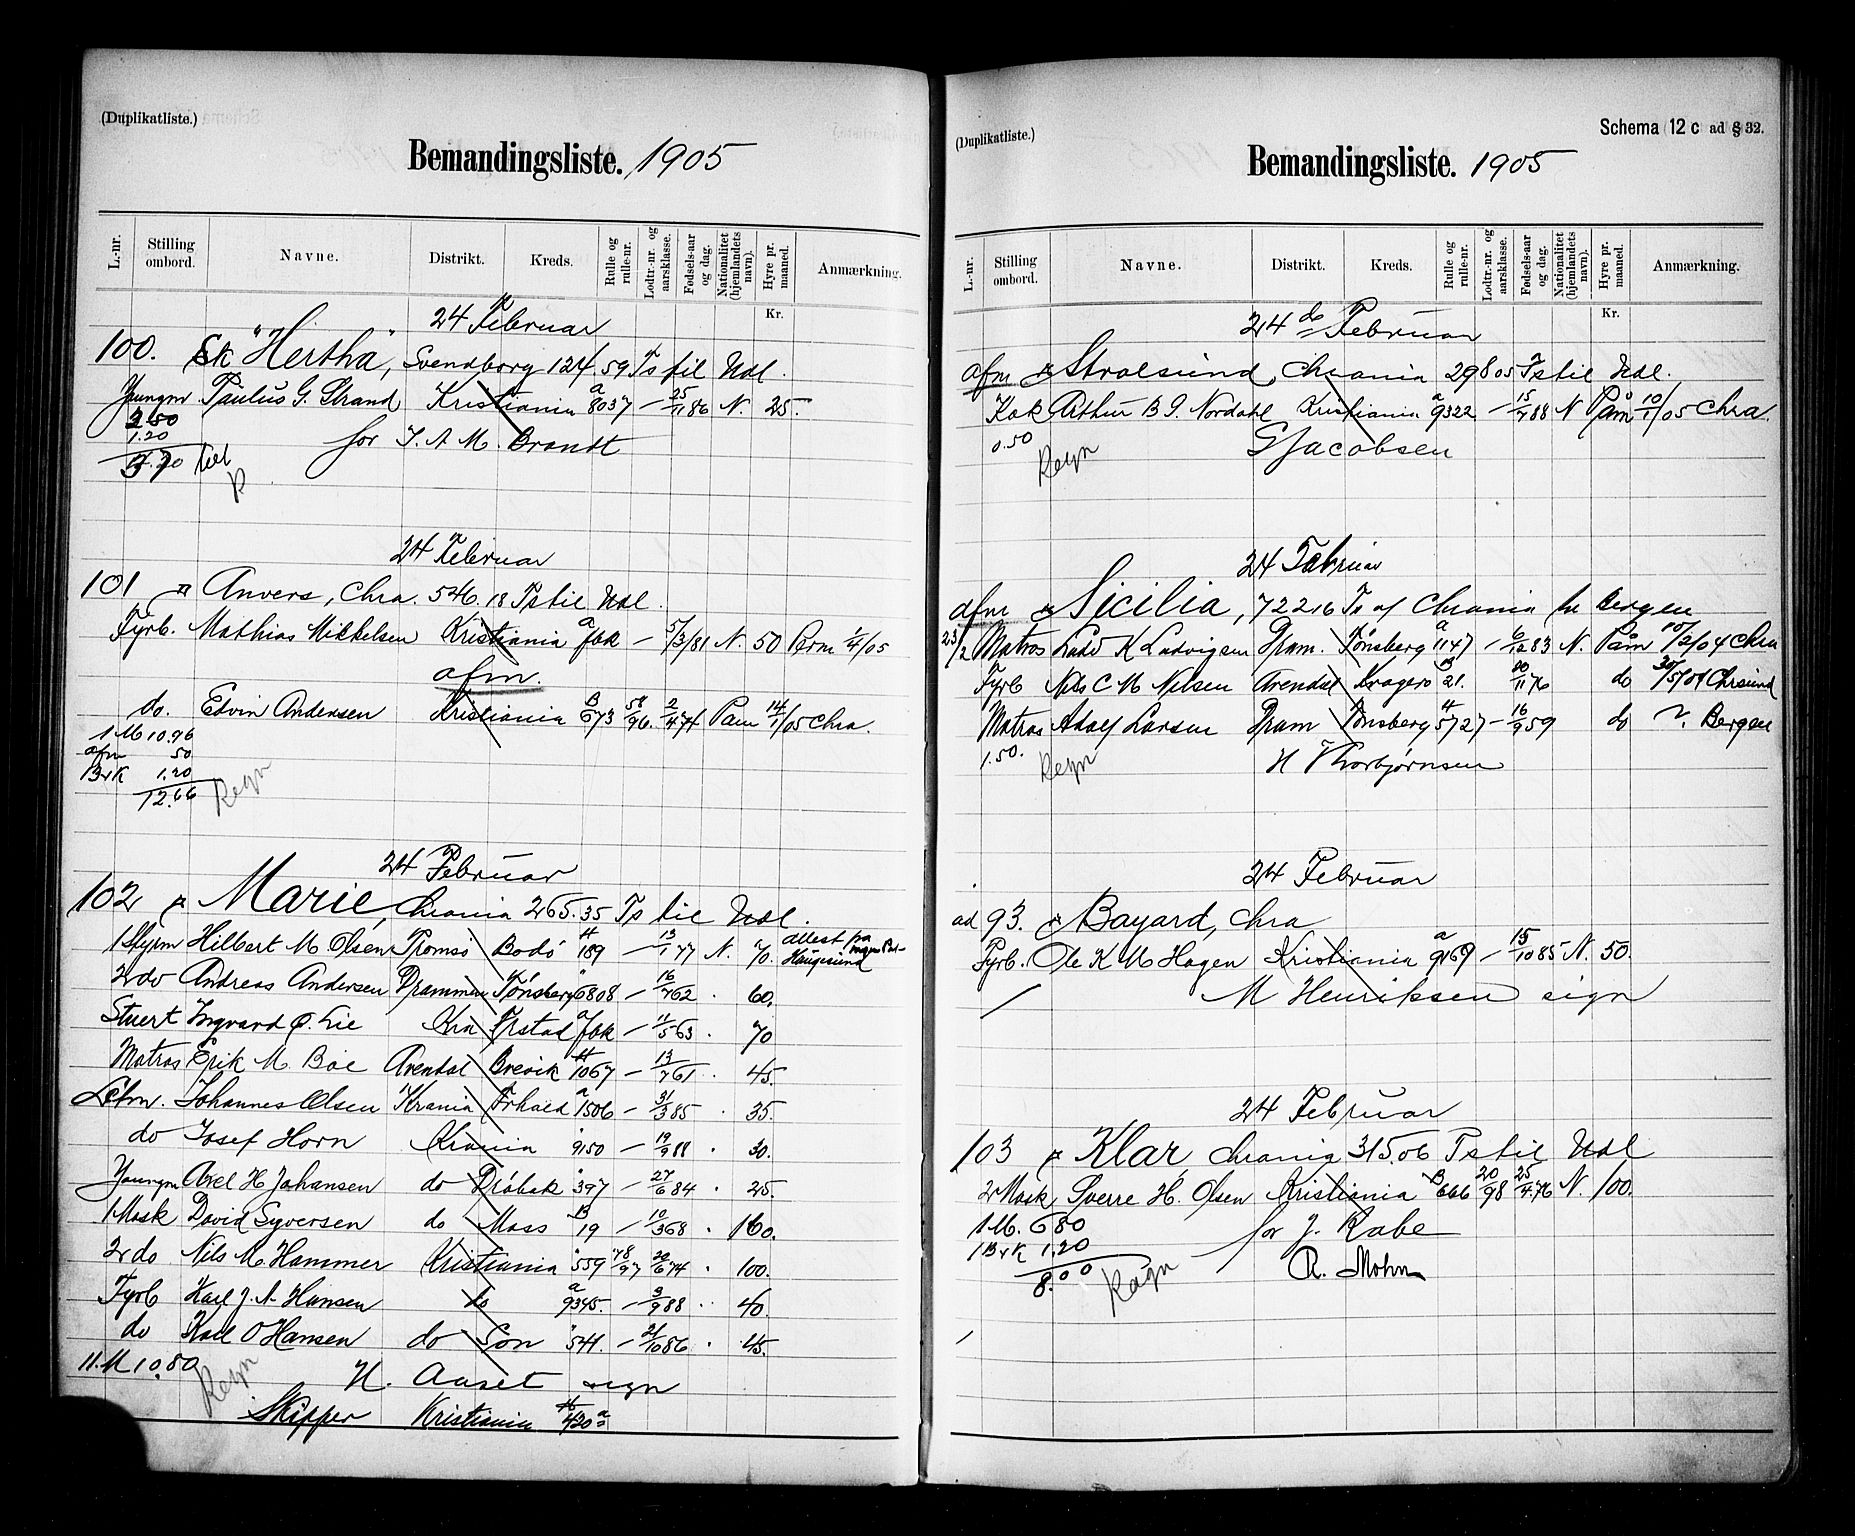 (Duplikatliste.)
Bemandingsliste. 1905
L.-nr. Stilling ombord. Navne. Distrikt. Kreds. Rulle og rulle-nr. Lodtr.-nr. og aarsklasse. Fødsels-aar og dag. Nationalitet (hjemlandets navn). Hyre pr. maaned. Anmærkning.
Kr.
24 Februar
100. Sk "Hertha", Svendborg 124.59 Ts til Udl.
Jungm Paulus G. Strand Kristiania a 8037 — 25/11 86 N. 25.
2.50
1.20
for J. A. M. Brandt
24 Februar
101 Anvers, Chra. 546.18 Ts til Udl.
Fyrb. Mathias Mikkelsen Kristiania a fbk — 5/3/81 N. 50 Brm 1/4/05
afm.
do. Edvin Andersen Kristiania B 673 58/96. 2/4 74 Paam 14/1/05 Chra.
1 M 10.96
afm 50
1 B & K 1.20
12.66 Regn
24 Februar
102 Marie, Chrania 265.35 Ts til Udl.
1 Styrm Hilbert M. Olsen Tromsø Bodö H 189 — 13/1 77 N. 70. Attest fra Haugesund
2 do Andreas Andersen Drammen Tönsberg 6808 — 16/7 62 . 60.
Stuert Ingvard O. Lie Kra Ørstad a fbk — 11/5 63 . 70
Matros Erik M. Boe Arendal Brevik H 1067 — 13/7 61 . 45.
Letm. Johannes Olsen Krania a 1506 — 31/3 85 . 35.
do Josef Horn Krania " 9150 — 19/9 88 . 30.
Jungm Axel H Johansen do Dröbak " 397 — 27/6 84 . 25.
1 Mask David Syversen do Moss B 19 — 10/3 68 . 160.
2 do Nils M. Hammer Kristiania " 559 78/97 20/6 74 . 100.
Fyrb Karl J. A. Hansen do a 9345. — 3/9 88 . 40.
do Karl O Hansen do Son " 541. — 21/10 86 . 45.
11. M 10.80 Regn H. Aaset sign
Skipper Kristiania 420
(Duplikatliste.) Schema 12 c ad § 32.
Bemandingsliste. 1905
L.-nr. Stilling ombord. Navne. Distrikt. Kreds. Rulle og rulle-nr. Lodtr.-nr. og aarsklasse. Fødsels-aar og dag. Nationalitet (hjemlandets navn). Hyre pr. maaned. Anmærkning.
Kr.
24 de Februar
afm Stralsund, Chrania 298.05 Ts til Udl.
Kok Arthur B. I. Nordahl Kristiania a 9322 — 15/7 88 N Påm 10/1/05 Chra.
0.50 Regn G Jacobsen
24 Februar
afm Sicilia, 722.16 Ts af Chrania til Bergen
23/2 Matros Ludv K Ludvigsen Dram. Tønsberg a 1147 — 6/12 83 N. Påm 15/2/04 Chra
Fyrb Nils C M Nilsen Arendal Kragerø B 21. 20/11 76 do 30/5/04 Chrsund
Matros Adolf Larsen Dram Tønsberg H 5727 — 16/9 59 do Bergen
1.50. Regn H Thorbjørnsen
24 Februar
ad 93. Bayard, Chra
Fyrb. Ole K M Hagen Kristiania a 9169 — 15/10 85 N. 50.
M Henriksen sign
24 Februar
103 Klar, Chrania 315.06 Ts til Udl
2 Mask Sverre H. Olsen Kristiania B 666 20/98 25/4. 76 N. 100.
1 M. 6.80 for J. Rabe
1 B & K 1.20
8.00 Regn R. Mohn